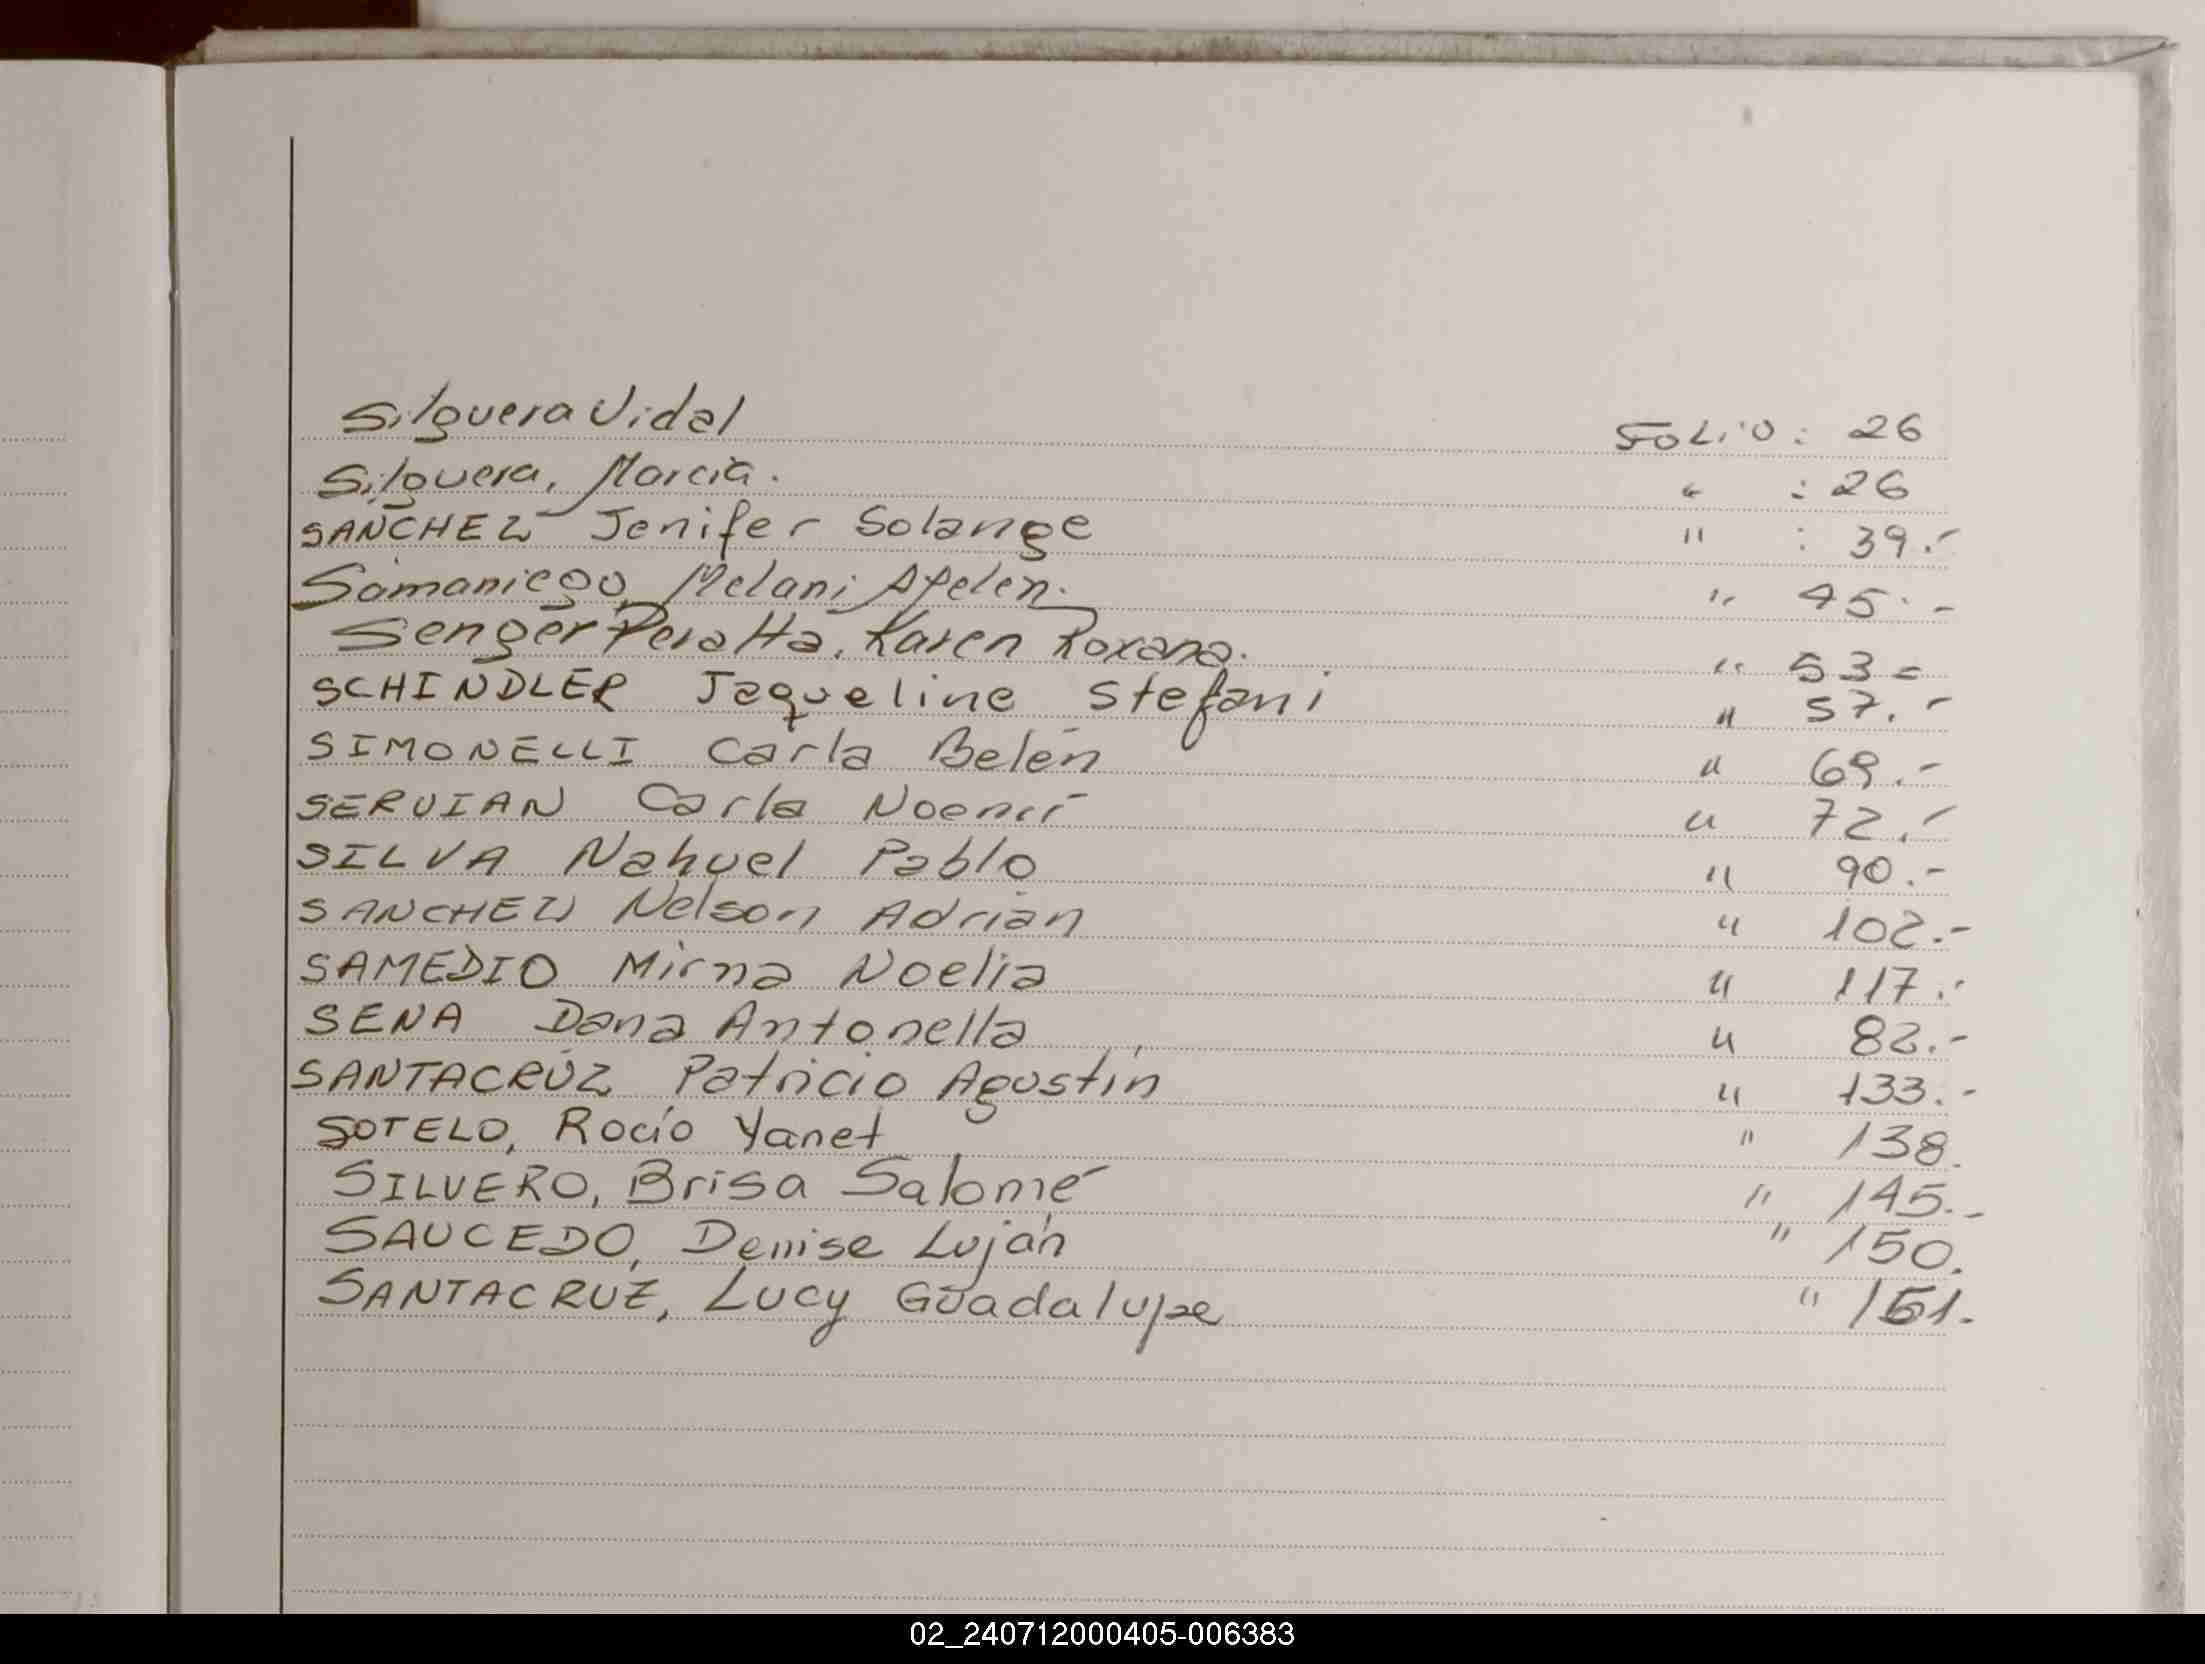 Silguera Vidal Folio: 26
Silguera, Marcia. " : 26
SANCHEZ Jenifer Solange " : 39.-
Samaniego, Melani Ayelen. " 45.-
Senger Peralta, Karen Roxana. " 53=
SCHINDLER Jaqueline Stefani " 57.-
SIMONELLI Carla Belén " 69.-
SERVIAN Carla Noemí " 72.-
SILVA Nahuel Pablo " 90.-
SANCHEZ Nelson Adrián " 102.-
SAMEDIO Mirna Noelia " 117.-
SENA Dana Antonella " 82.-
SANTACRUZ Patricio Agustín " 133.-
SOTELO, Rocío Yanet " 138.
SILVERO, Brisa Salomé " 145.-
SAUCEDO, Denise Luján " 150.
SANTACRUZ, Lucy Guadalupe "
02_240712000405-006383